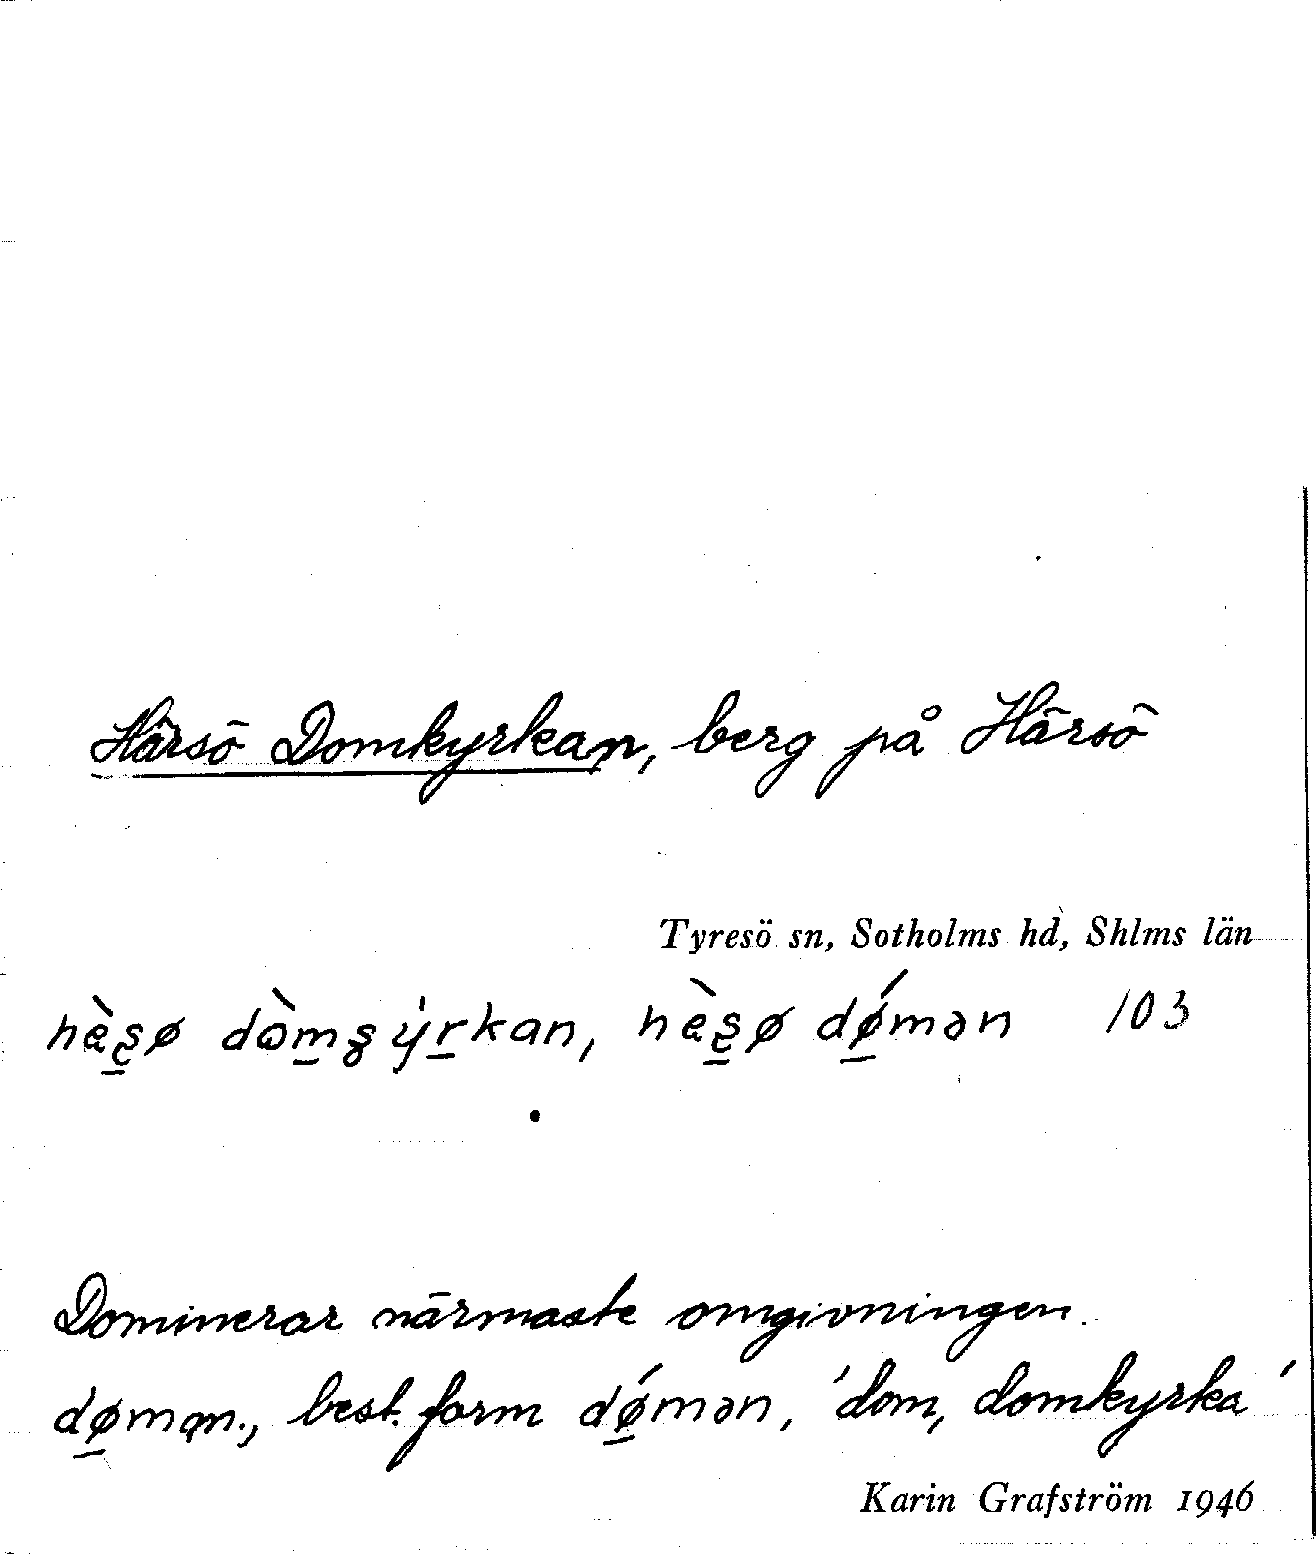 Härsö Domkyrkan, berg på Härsö
Tyresö sn, Sotholms hd, Shlms län
103
Dominerar närmaste omgivningen.
best. form dǿ̲mən, 'dom, domkyrka'
Karin Grafström 1946